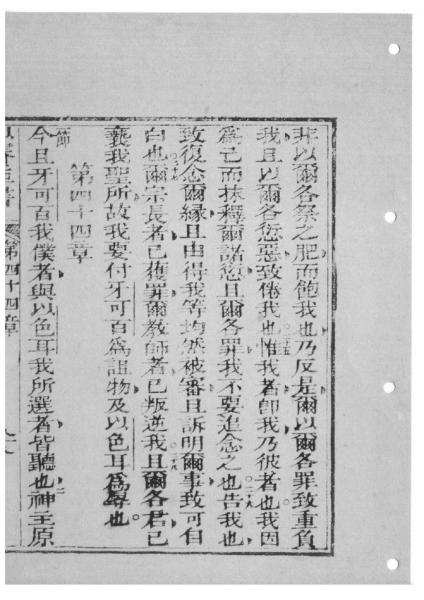 非以爾各祭之肥而飽我也乃反是爾以爾各罪致重負
我且以爾各愆惡致倦我也惟我者卽我乃彼者也我因
爲己而抹釋爾諸愆且爾各罪我不要追念之也告我也
致復念爾緣且由得我等均然被審且訴明爾事致可自
白也爾宗長者已獲罪爾教師者已叛逆我且爾各君已
褻我聖所故我要付牙可百爲詛物及以色耳爲辱也
第四十四章
節
今且牙可百我僕者與以色耳我所選者皆聽也神主原
第四十四章